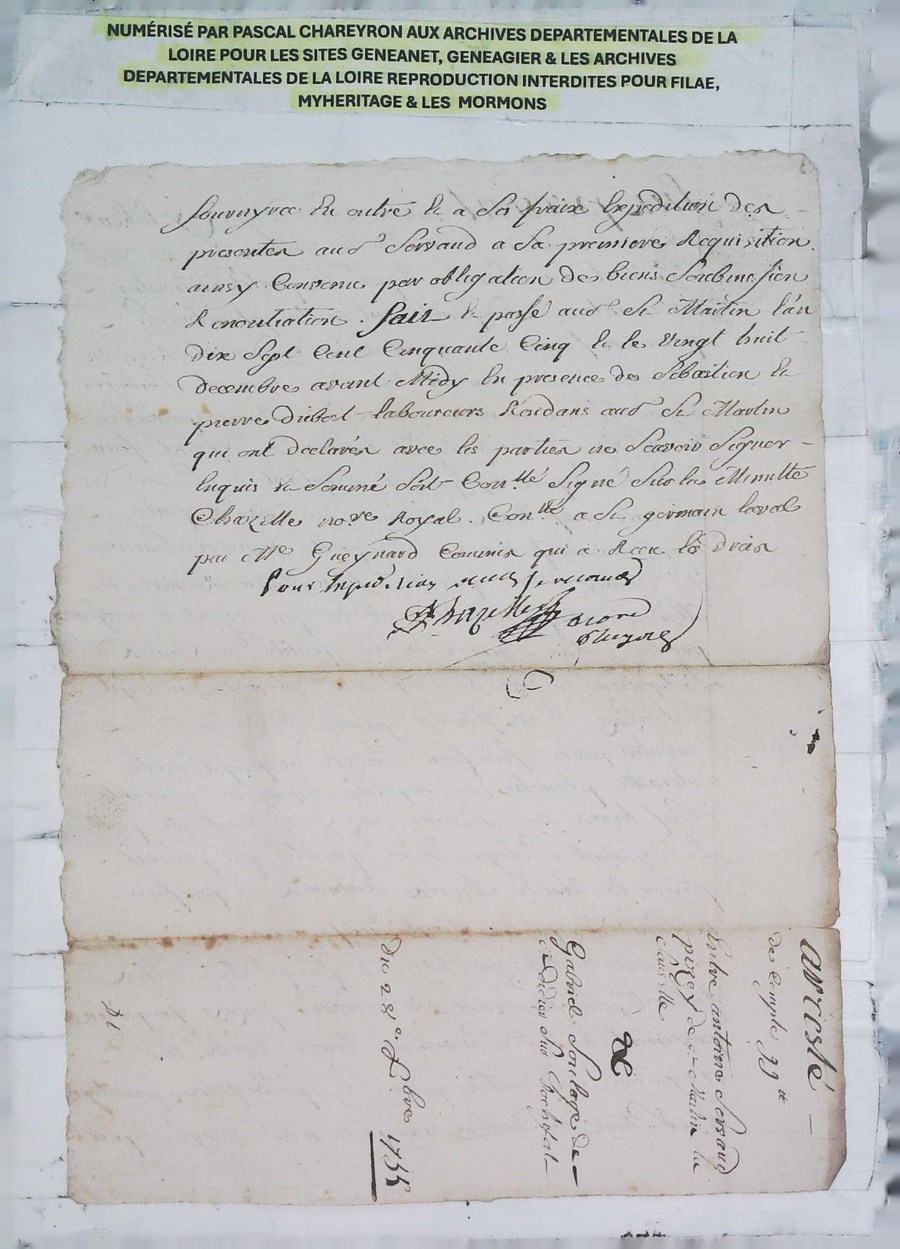 NUMÉRISÉ PAR PASCAL CHAREYRON AUX ARCHIVES DEPARTEMENTALES DE LA
LOIRE POUR LES SITES GENEANET, GENEAGIER & LES ARCHIVES
DEPARTEMENTALES DE LA LOIRE REPRODUCTION INTERDITES POUR FILAE,
MYHERITAGE & LES MORMONS
fournyra En outre Et a Ses fraix Lexpedition des
presentes aud Servaud a Sa premiere Requisition.
ainsy Convenu par obligation de biens
Renontiation. fait Et passé aud St Martin l'an
dix Sept Cent Cinquante Cinq Et le Vingt huit
Decembre avant Midy En presence de Sebastien Et
pierre laboureurs Rezidans aud St Martin
qui ont declarés avec les parties ne Scavoir Signer
Enquis & Sommé Soit Conttlé Signé Sur la Minutte
Chazelle nore Royal. Conttlé a St germain laval
par Me Gueynard Commis qui a Receu les droits
Pour Expedition
Chazelle
arresté
de Compte 99 tt
Entre antoine Servaud
de St Martin la
&
Gabriel Soulage de
St Didier Sur Rochefort
Du 28e Xbre 1755